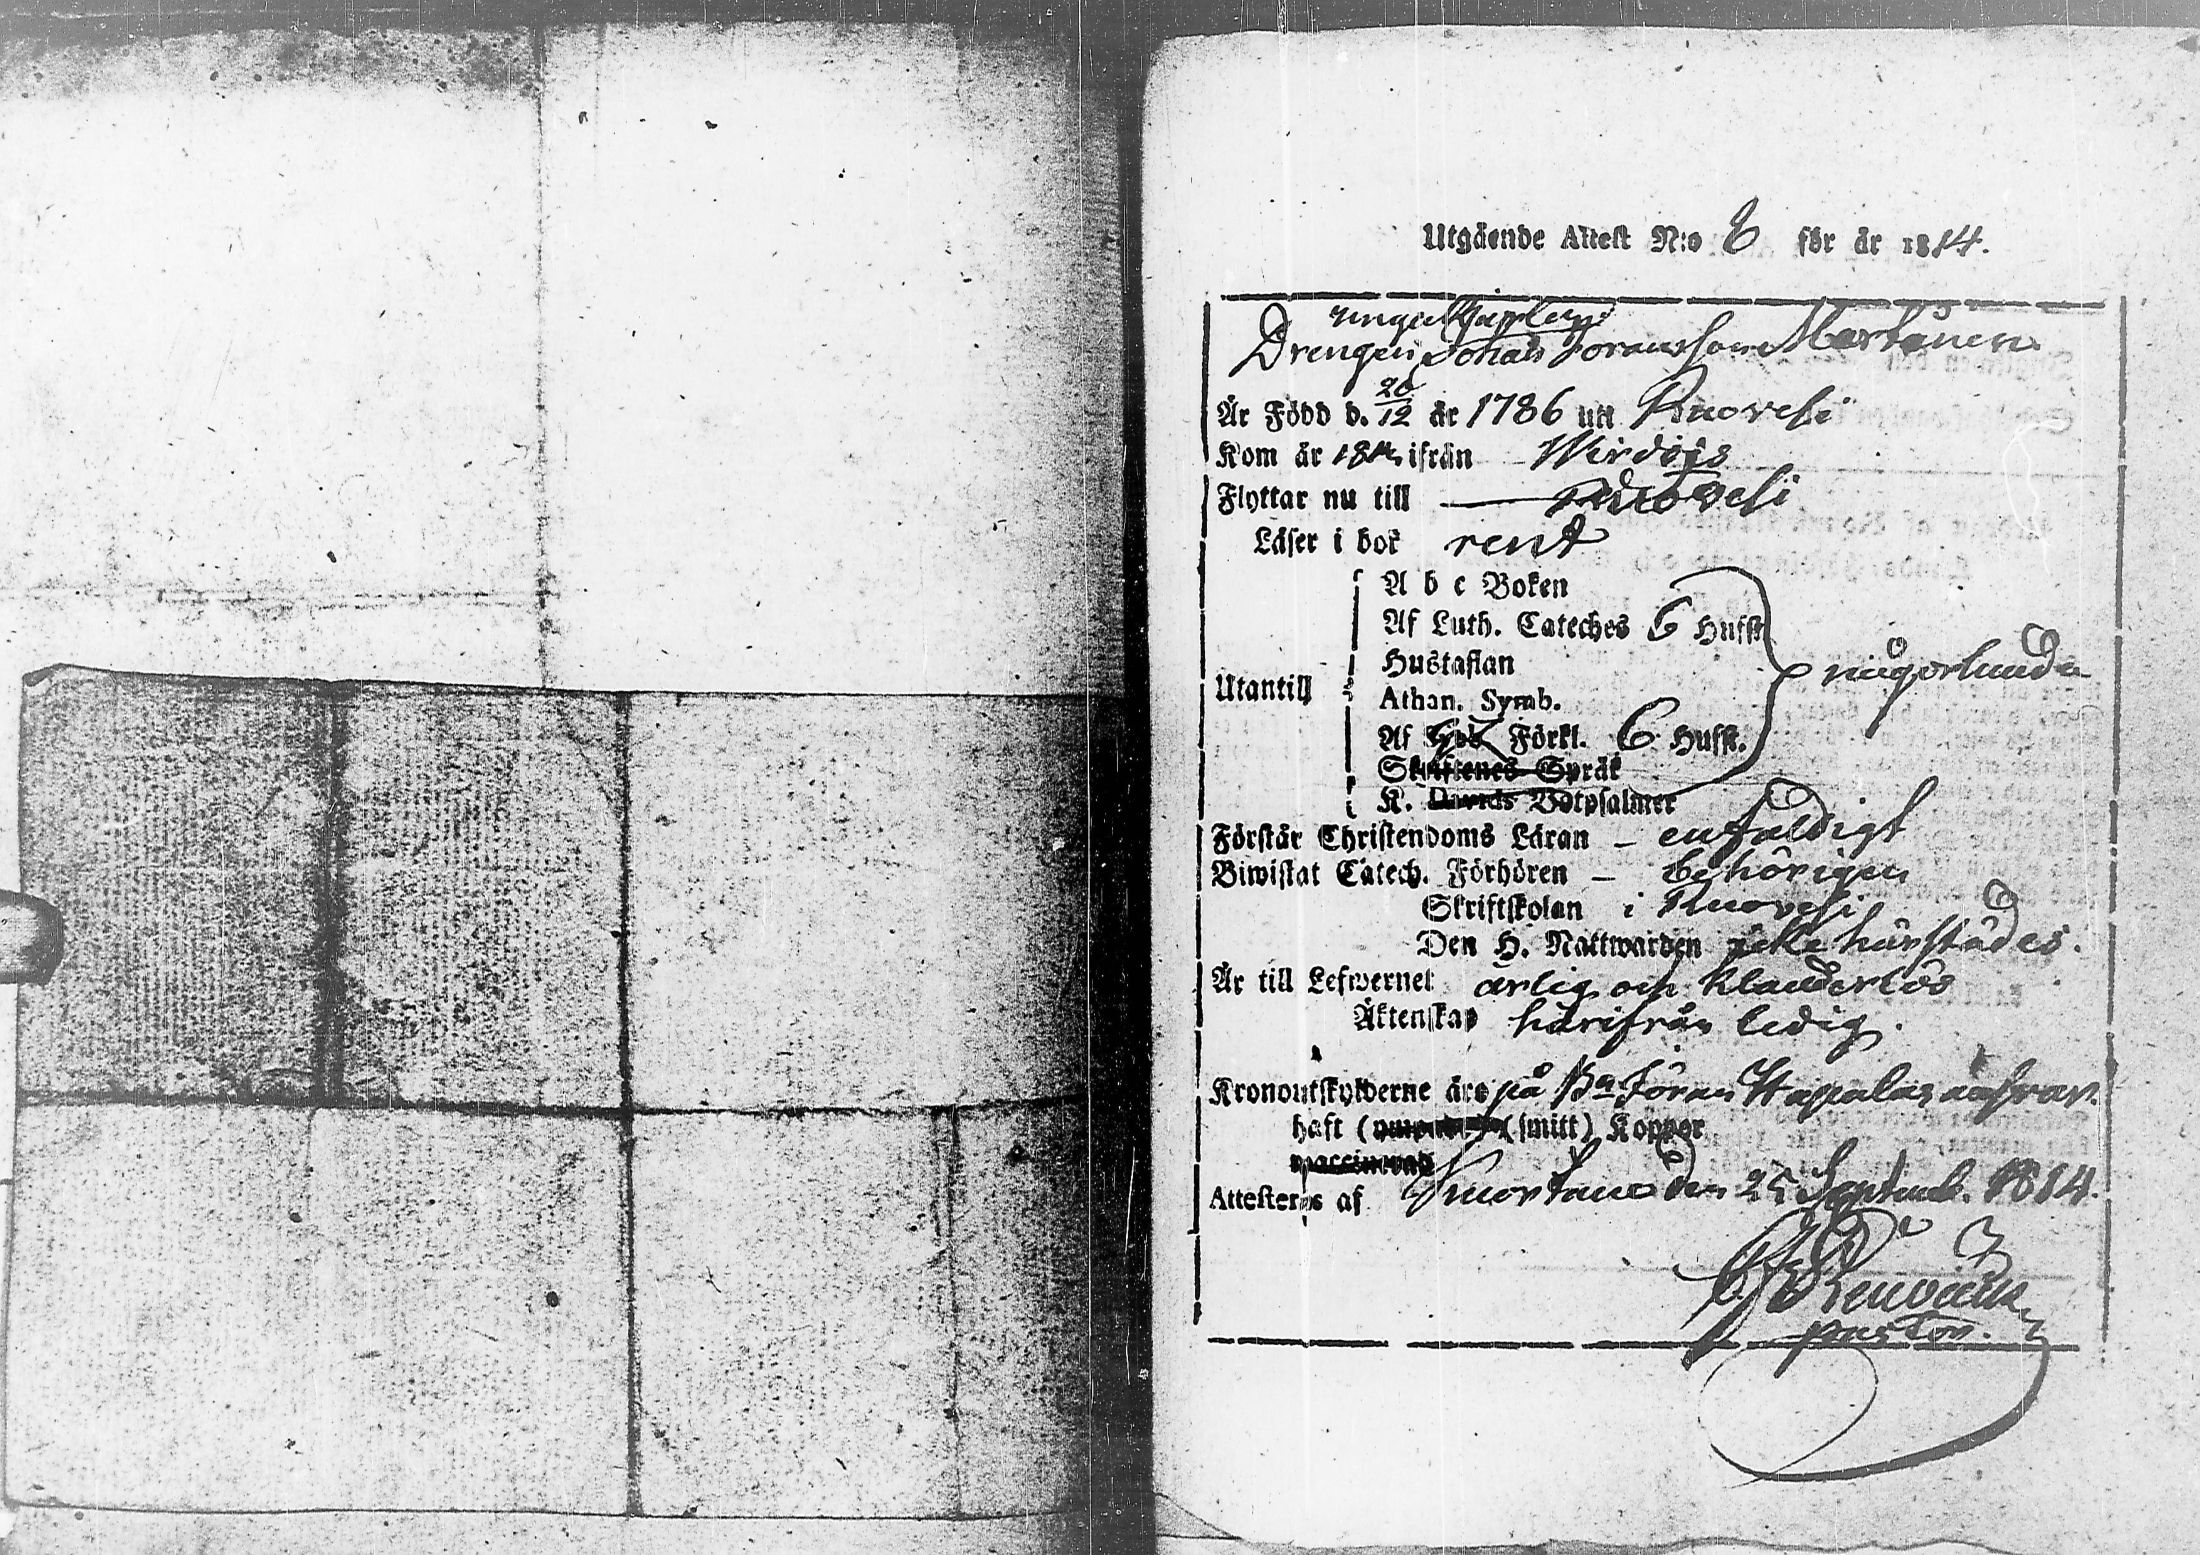 Utgående Attest N:o 8 för år 1814.
unga Karlen
Drengen Johan Joransson Martainen
Är Född d. 26/12 år 1786 uti Ruovesi
Kom år 1814 ifrån Wirdois
Flyttar nu till Ruovesi
Läser i bok rent
Utantill
A b c Boken
Af Luth. Cateches 6 Husst
Hustaflan
Athan. Symb.
Af Förkl. 6 Husst.
Skriftenes Språk
K. Davids Botpsalmer
någorlunda
Förstår Christendoms Läran – enfaldigt
Biwistat Catech. Förhören – behörigen
Skriftskolan i Ruovesi
Den H. Nattwarden icke härstädes.
Är till Lefwernet ärlig och klanderlös
Äktenskap härifrån ledig.
Kronoutskylderne äro på Bn Jöran Hapalas ansvar.
haft (smitt) Koppor
vaccinerad
Attesteras af den 25 Septemb. 1814.
pastor.